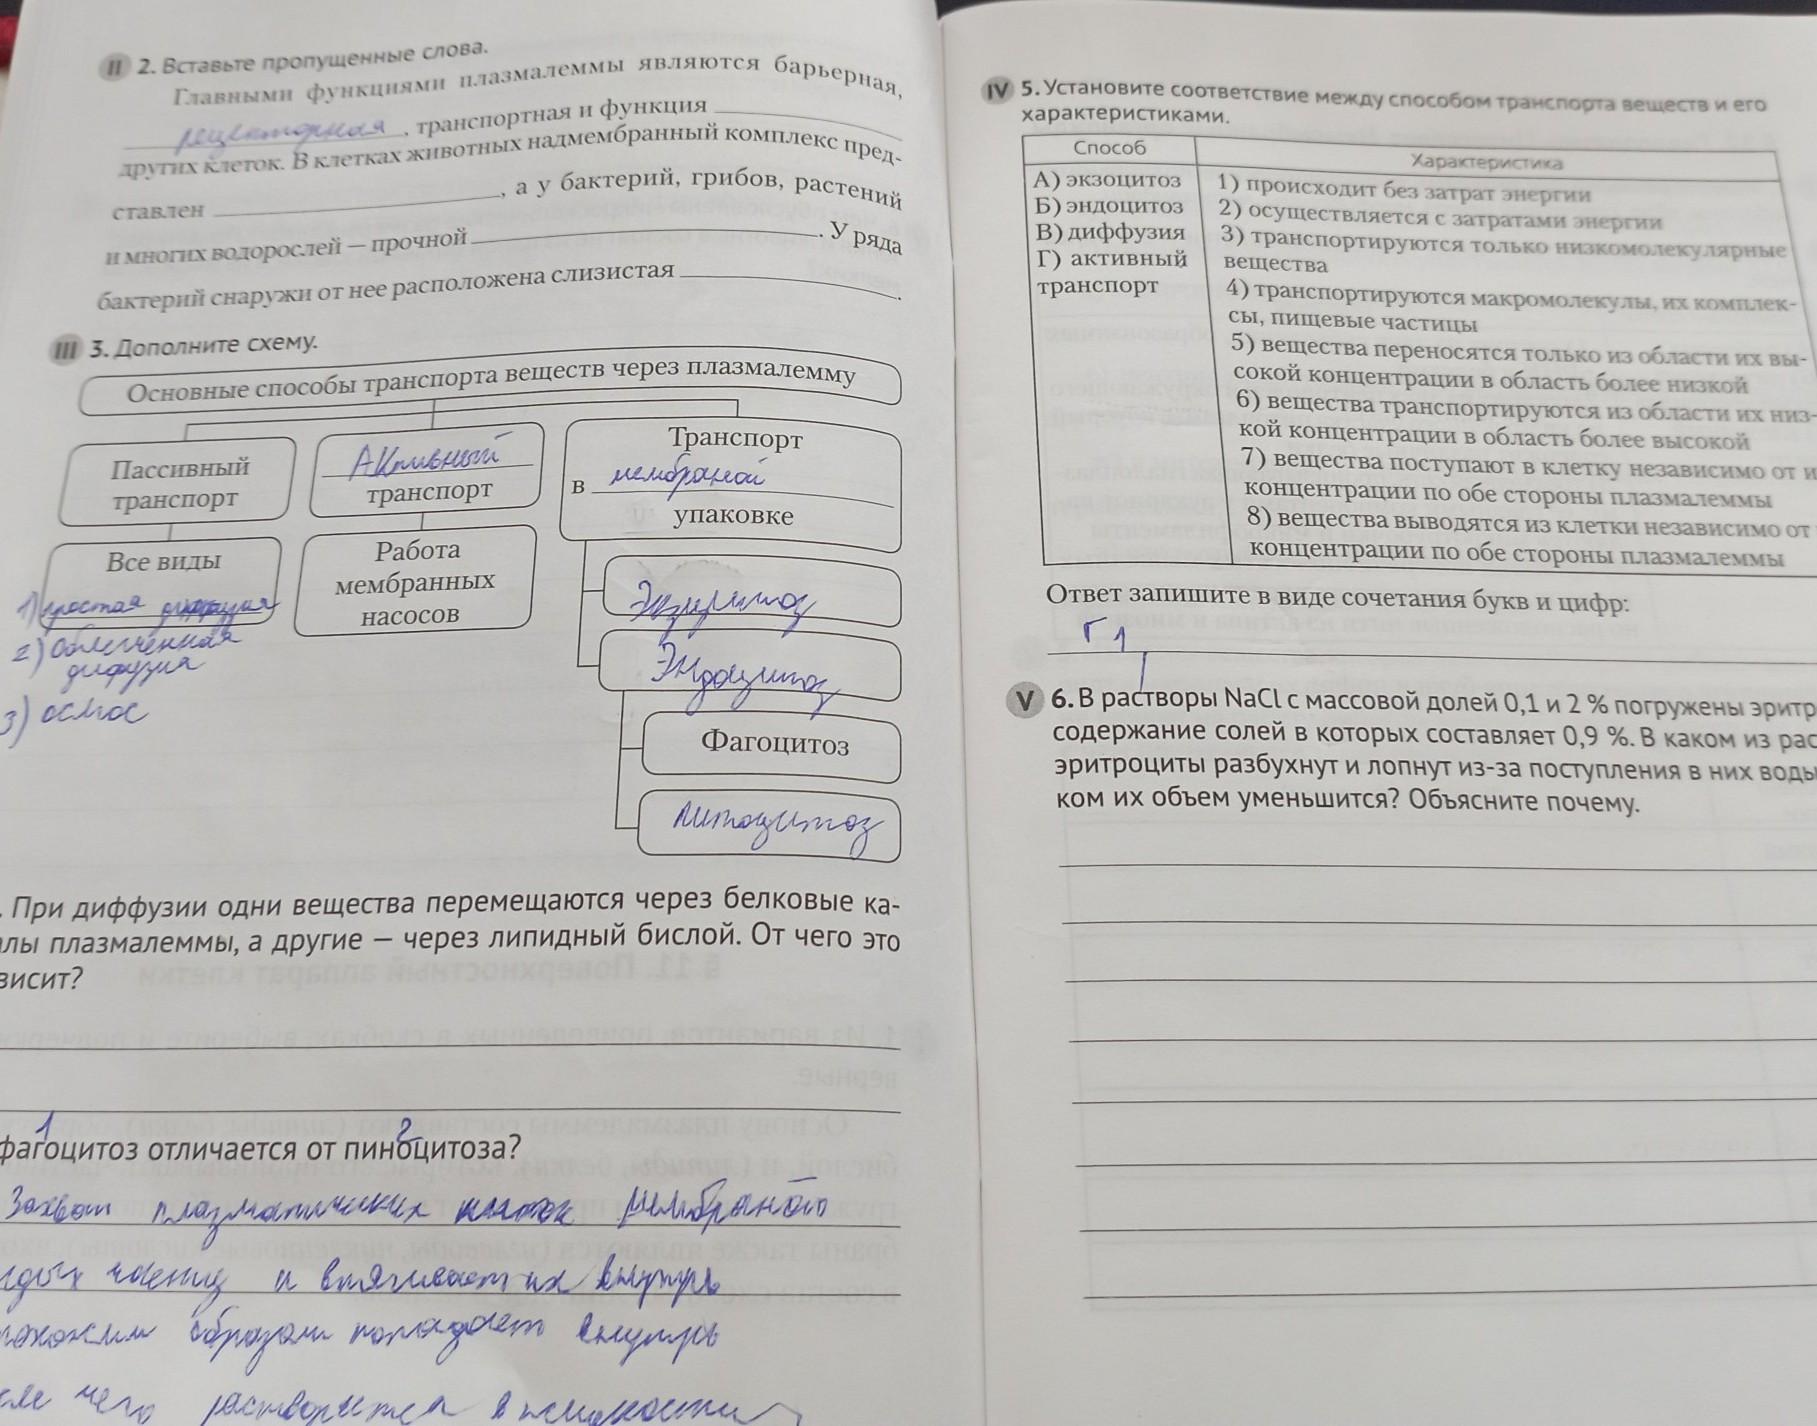 II 2. Вставьте пропущенные слова.
Главными функциями плазмалеммы являются барьерная,
рецепторная, транспортная и функция
других клеток. В клетках животных надмембранный комплекс пред-
ставлен , а у бактерий, грибов, растений
и многих водорослей — прочной . У ряда
бактерий снаружи от нее расположена слизистая .
III 3. Дополните схему.
Основные способы транспорта веществ через плазмалемму
Пассивный
транспорт
Активный
транспорт
Транспорт
в мембраной
упаковке
Все виды
1) простая диффузия
2) облегчённая
дифузия
3) осмос
Работа
мембранных
насосов
Экзоцитоз
Эндоцитоз
Фагоцитоз
пиноцитоз
. При диффузии одни вещества перемещаются через белковые ка-
лы плазмалеммы, а другие — через липидный бислой. От чего это
висит?
1 2
фагоцитоз отличается от пиноцитоза?
Захват плазматических клеток мембраной
частиц и втягивает их внутрь
образом попадает внутрь
чего растворяется в жидкости
IV 5. Установите соответствие между способом транспорта веществ и его
характеристиками.
Способ
Характеристика
А) экзоцитоз
Б) эндоцитоз
В) диффузия
Г) активный
транспорт
1) происходит без затрат энергии
2) осуществляется с затратами энергии
3) транспортируются только низкомолекулярные
вещества
4) транспортируются макромолекулы, их комплек-
сы, пищевые частицы
5) вещества переносятся только из области их вы-
сокой концентрации в область более низкой
6) вещества транспортируются из области их низ-
кой концентрации в область более высокой
7) вещества поступают в клетку независимо от и
концентрации по обе стороны плазмалеммы
8) вещества выводятся из клетки независимо от
концентрации по обе стороны плазмалеммы
Ответ запишите в виде сочетания букв и цифр:
Г 1
V 6. В растворы NaCl с массовой долей 0,1 и 2 % погружены эритр
содержание солей в которых составляет 0,9 %. В каком из рас
эритроциты разбухнут и лопнут из-за поступления в них воды
ком их объем уменьшится? Объясните почему.